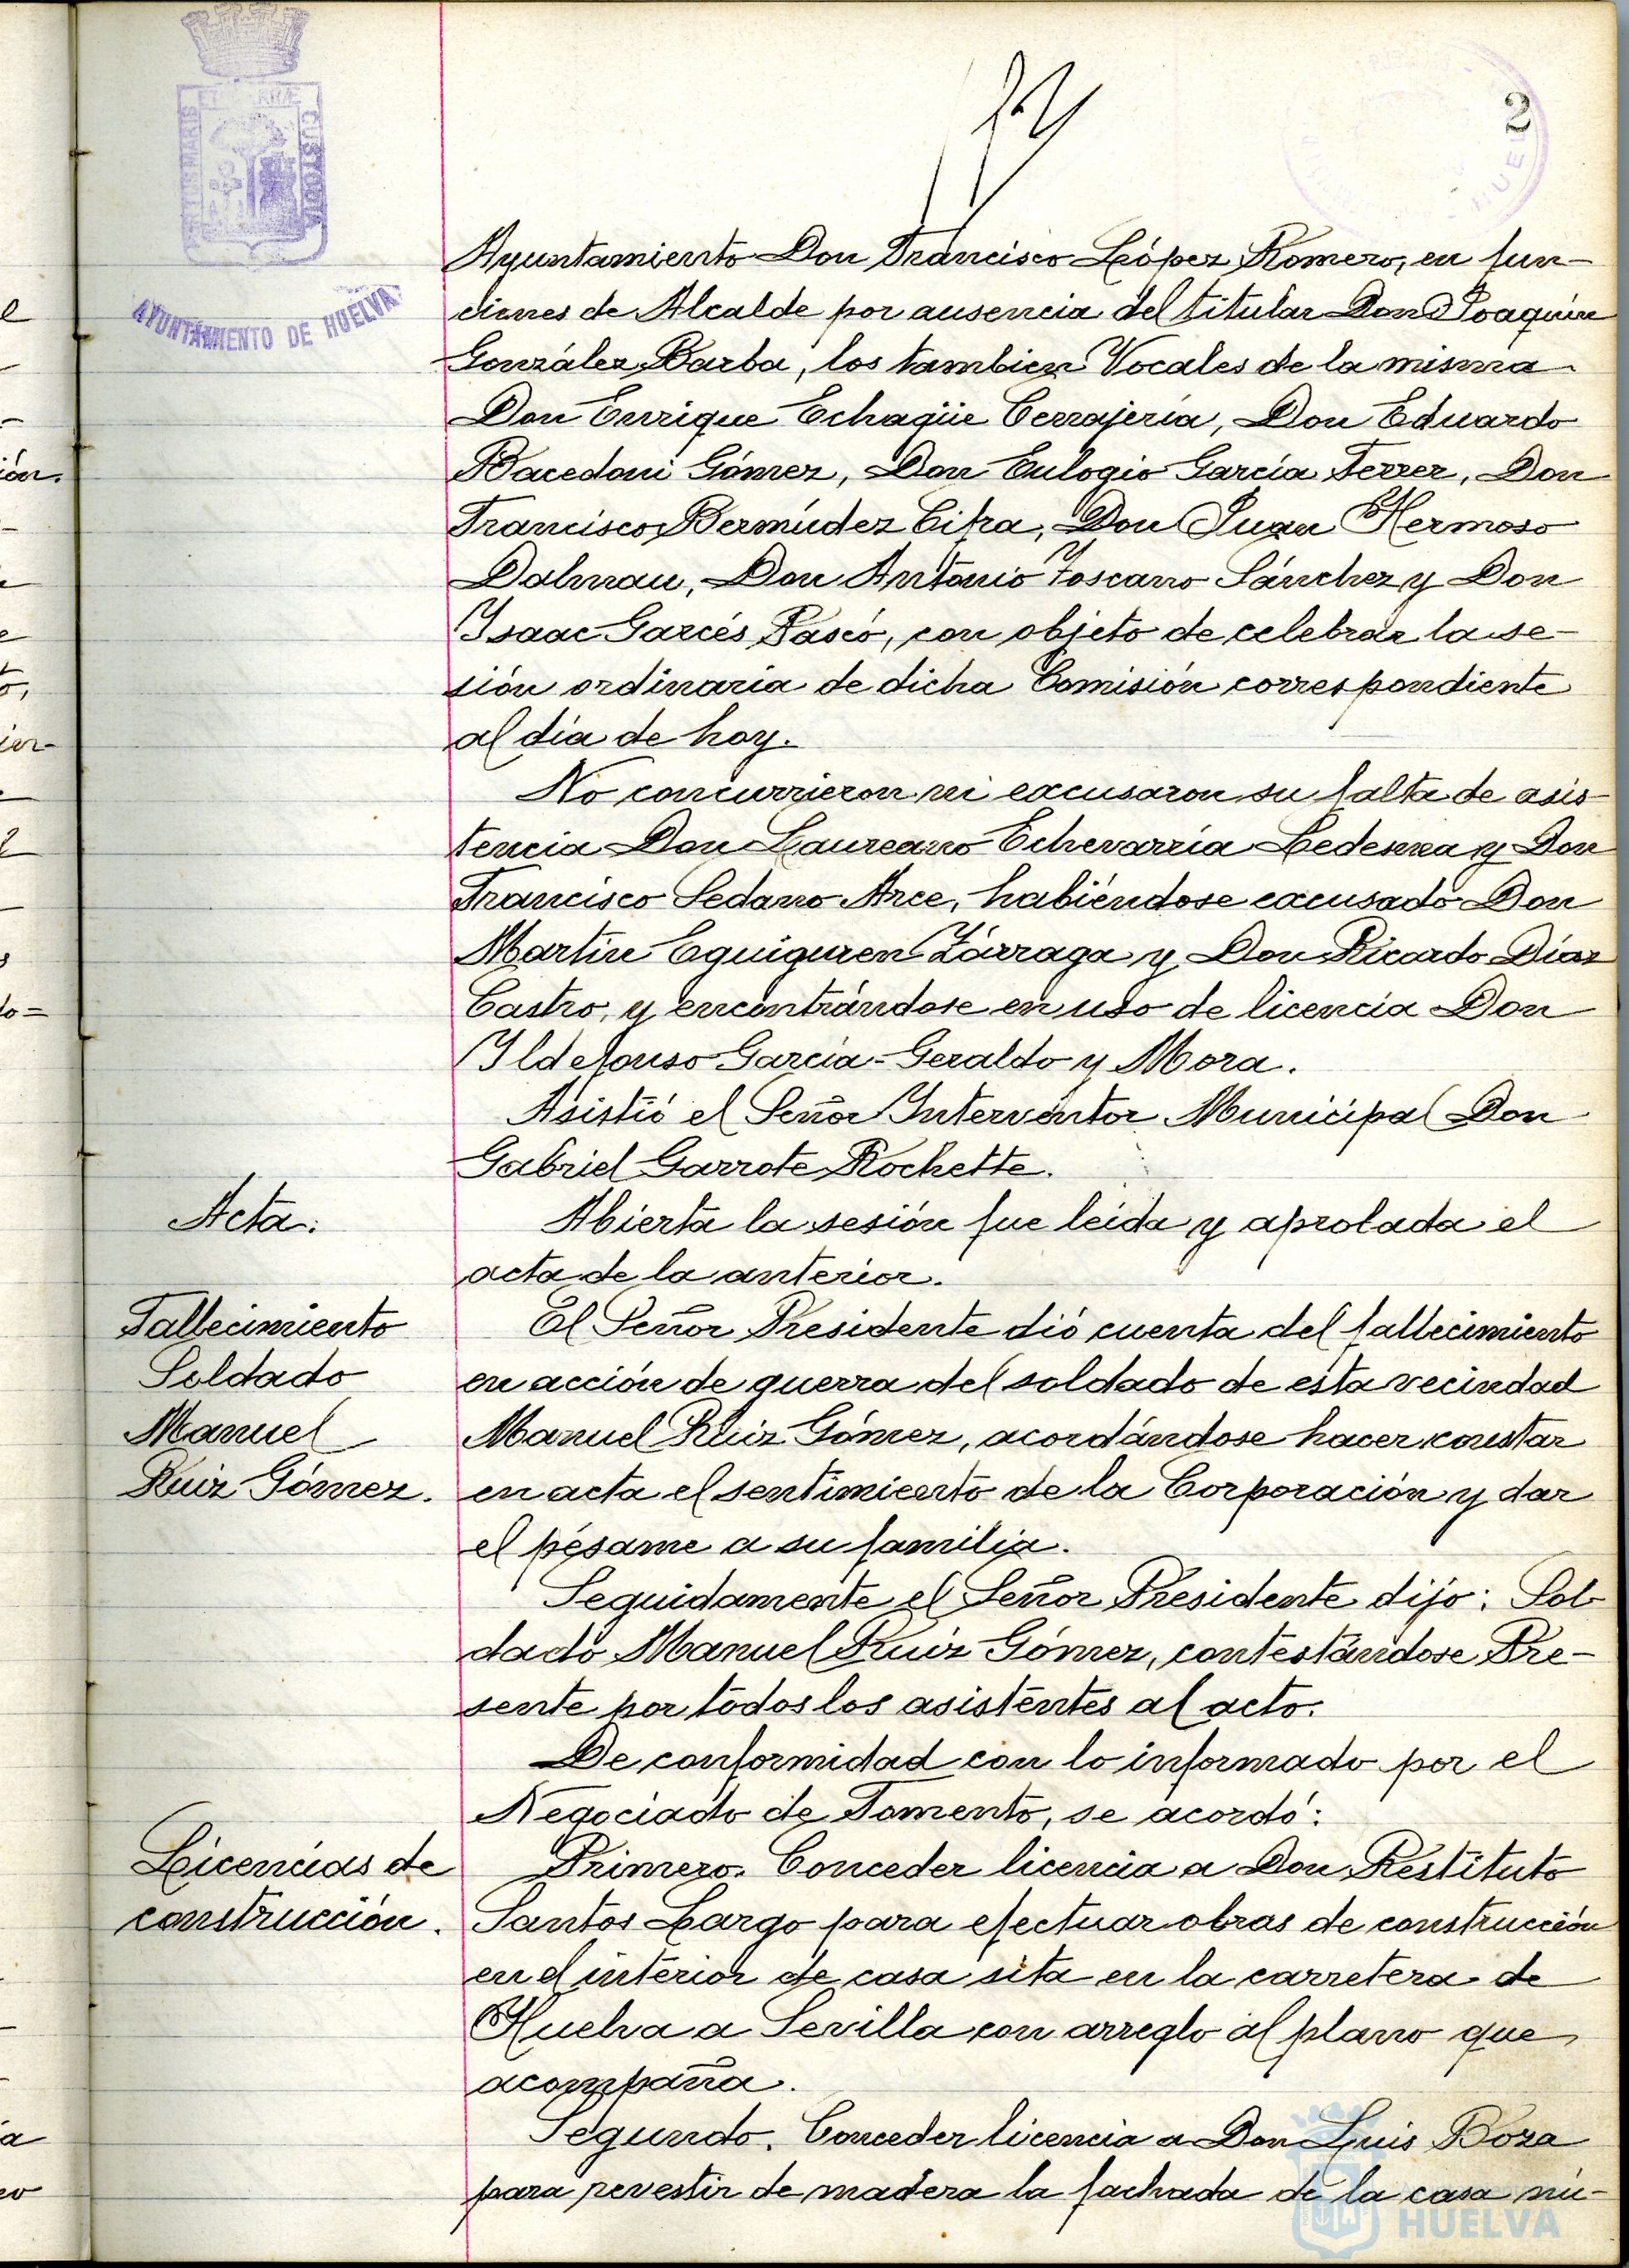 PORTUS MARIS ET TERRÆ CUSTODIA
AYUNTAMIENTO DE HUELVA
2
Ayuntamiento Don Francisco López Romero, en fun-
ciones de Alcalde por ausencia del titular Don Joaquín
González Barba, los tambien Vocales de la misma
Don Enrique Echagüe Cerrajería, Don Eduardo
Bacedoni Gómez, Don Eulogio García Ferrer, Don
Francisco Bermúdez Cifra, Don Juan Hermoso
Dalmau, Don Antonio Toscano Sánchez y Don
Isaac Garcés Pascó, con objeto de celebrar la se-
sión ordinaria de dicha Comisión correspondiente
al día de hoy.
No concurrieron ni excusaron su falta de asis-
tencia Don Laureano Echevarría Ledesma y Don
Francisco Sedano Arce, habiéndose excusado Don
Martín Eguiguren Zárraga y Don Ricardo Díaz
Castro, y encontrándose en uso de licencia Don
Ildefonso García-Geraldo y Mora.
Asistió el Señor Interventor Municipal Don
Gabriel Garrote Rochette.
Acta.
Abierta la sesión fue leída y aprobada el
acta de la anterior.
Fallecimiento
Soldado
Manuel
Ruiz Gómez.
El Señor Presidente dió cuenta del fallecimiento
en acción de guerra del soldado de esta vecindad
Manuel Ruiz Gómez, acordándose hacer constar
en acta el sentimiento de la Corporación y dar
el pésame a su familia.
Seguidamente el Señor Presidente dijo: Sol-
dado Manuel Ruiz Gómez, contestándose Pre-
sente por todos los asistentes al acto.
De conformidad con lo informado por el
Negociado de Fomento, se acordó:
Licencias de
construcción.
Primero. Conceder licencia a Don Restituto
Santos Largo para efectuar obras de construcción
en el interior de casa sita en la carretera de
Huelva a Sevilla con arreglo al plano que
acompaña.
Segundo. Conceder licencia a Don Luis Boza
para revestir de madera la fachada de la casa nú-
HUELVA